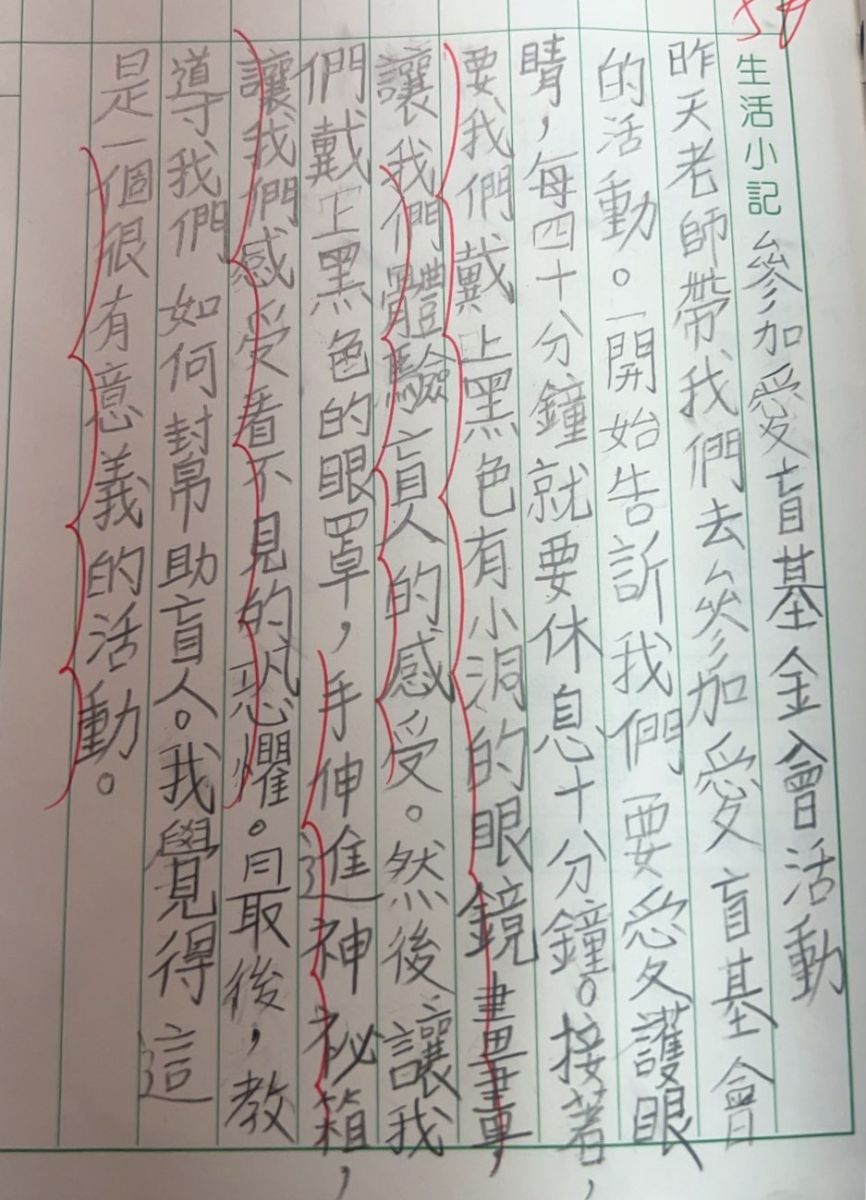 生活小記 參加愛盲基金會活動
昨天老師帶我們去參加愛盲基會
的活動。一開始告訴我們要愛護眼
睛，每四十分鐘就要休息十分鐘。接著，
要我們戴上黑色有小洞的眼鏡畫畫，
讓我們體驗盲人的感受。然後讓我
們戴上黑色的眼罩，手伸進神祕箱，
讓我們感受看不見的恐懼。最後，教
導我們如何封幫助盲人。我覺得這
是一個很有意義的活動。